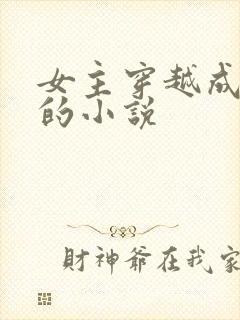 女主穿越成
的小說
財神爺在我家